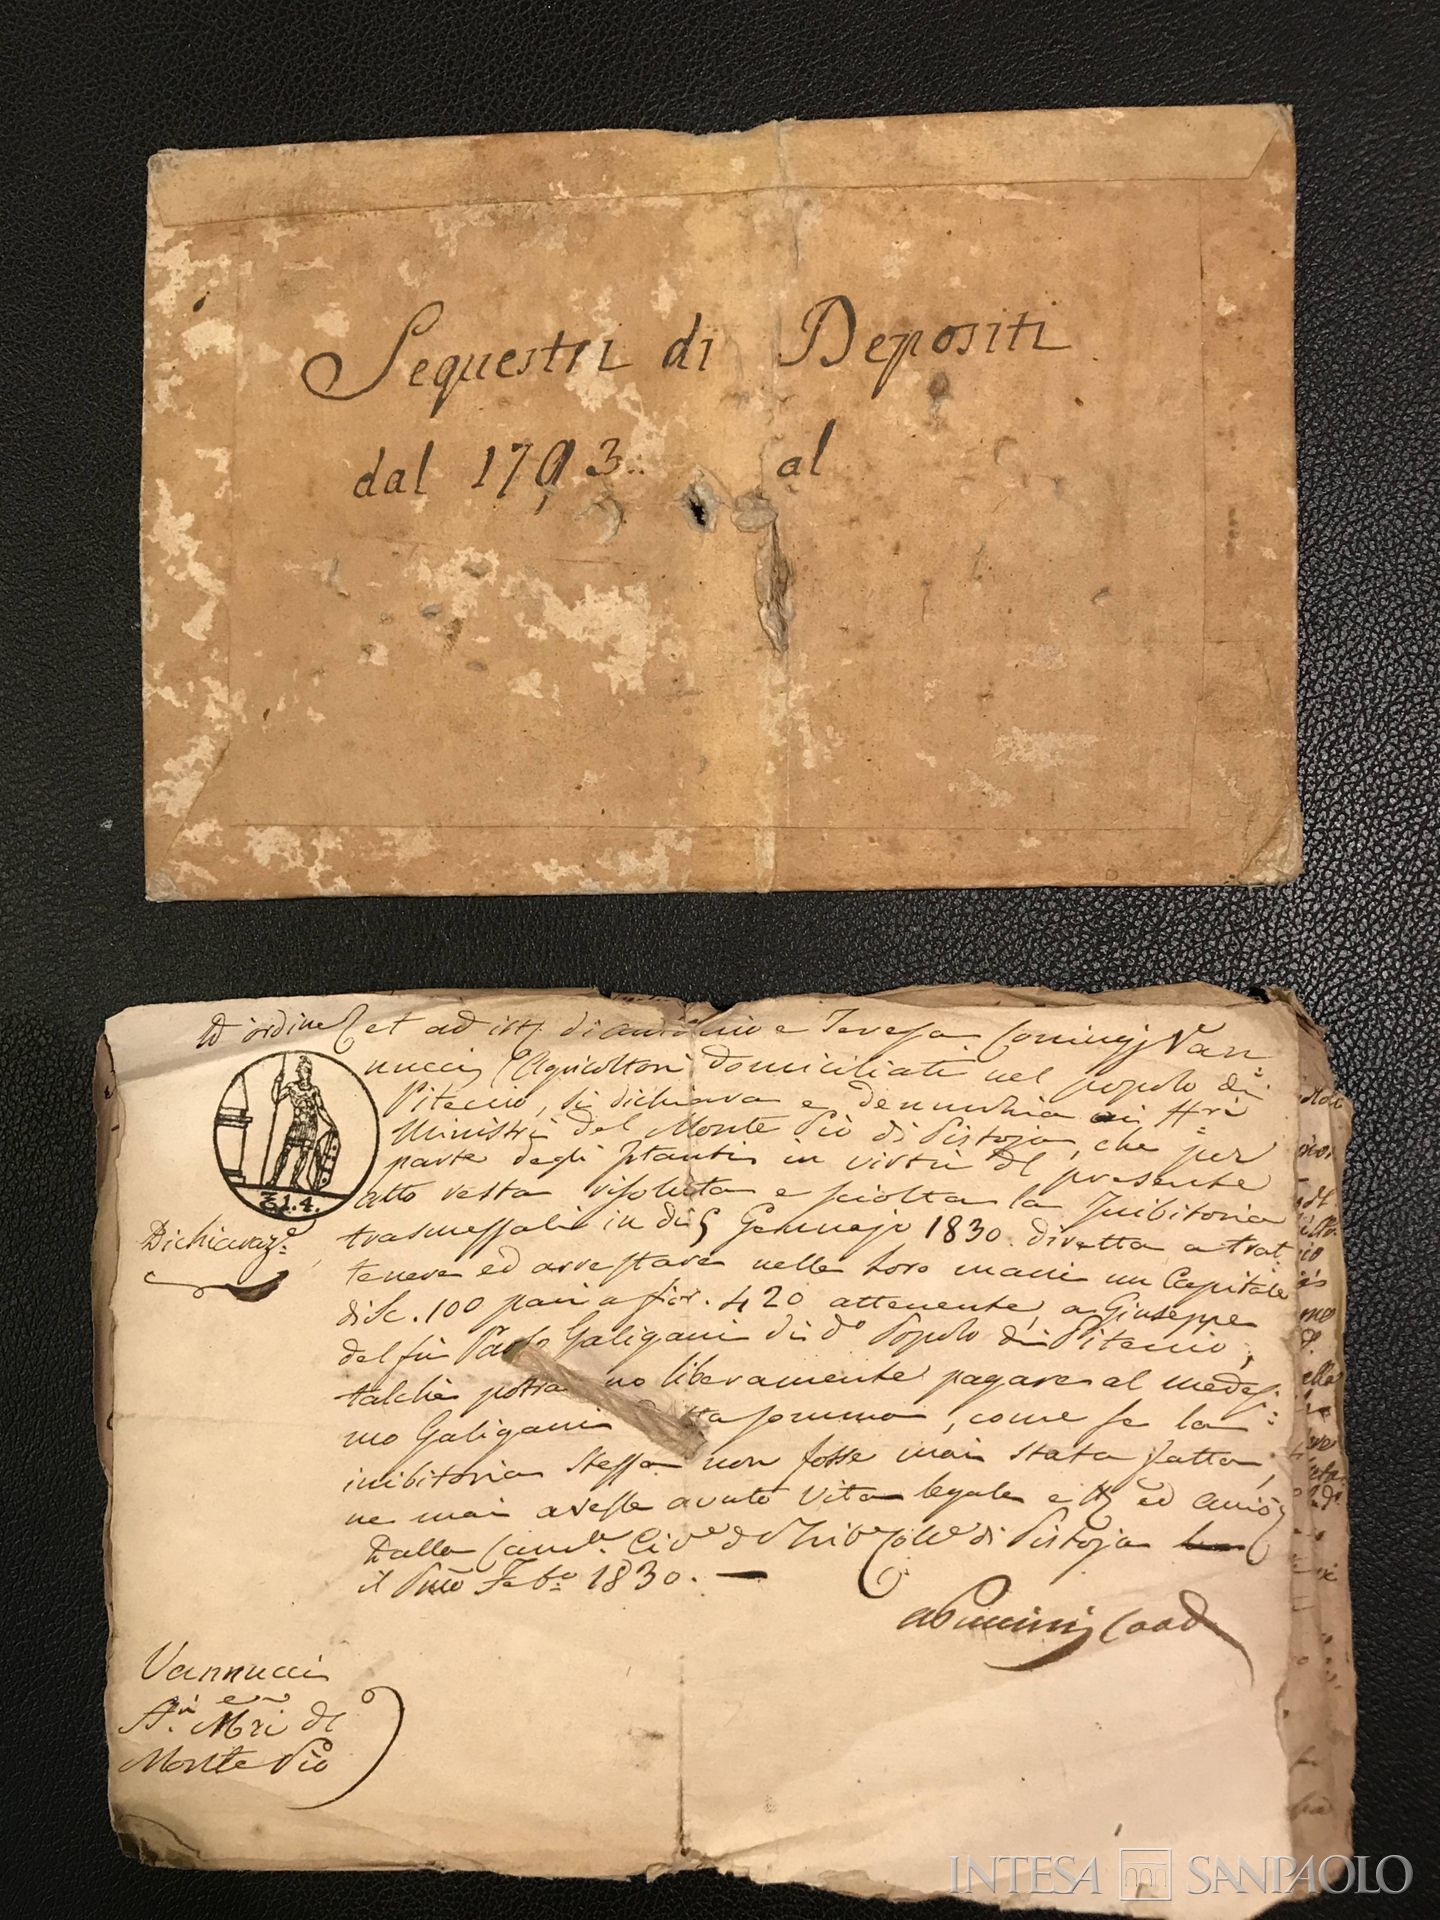 Sequestri di Depositi
dal 1793.. al
D'ordine et ad ist. di Antonio e Teresa Coniugj Van=
nucci Agricoltori domiciliati nel popolo di
Piteccio, si dichiara e denunzia ai
Ministri del Monte Pio di Pistoja, che per
parte degli Istanti in virtù del presente
atto resta risoluta e sciolta la Inibitoria
trasmessali in di 5 Gennajo 1830. diretta a trat=
tenere ed arrestare nelle loro mani un Capitale
di Sc. 100 pari a fior. 420 attenente a Giuseppe
del fu Paolo Galigani di do. Popolo di Piteccio,
talchè potranno liberamente pagare al medesi=
mo Galigani detta somma, come se la
inibitoria stessa non fosse mai stata fatta,
ne mai avesse avuto vita legale e
Dalla Canc. Civ. di Pistoja
il Pmo Febo. 1830. —
Coad
31.4.
Dichiaraz.e
Vannucci
Mri di
Monte Pio
INTESA SANPAOLO